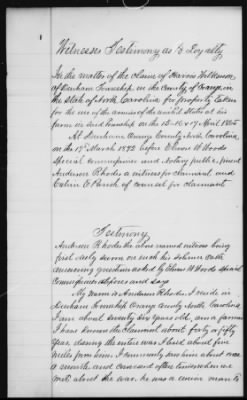 1
Witnesses Testimony as to Loyalty
In the matter of the claim of Harris Wilkerson
of Durham Township in the County of Orange in
the State of North Carolina for property taken
for the use of the armies of the United States at his
farm in said Township on the 15th 16 & 17 April 1865
At Durham Orange County North Carolina
on the 12th March 1873 before Elhu W Woods
Special commissioner and Notary public, appeared
Anderson Rhodes a witness for claimant and
Calvin E Parish of counsel for claimant
Testimony
Anderson Rhodes the above named witness being
first duly sworn on oath his solemn oath
answering questions asked by W Woods special
Commissioner deposes and says
My name is Anderson Rhodes. I reside in
Durham Township Orange County North Carolina
I am about seventy six years old, am a farmer
I have known the claimant about forty or fifty
years, during the entire war I lived about five
miles from him. I commonly saw him about once
a month and conversed often times when we
met about the war. he was a union man &